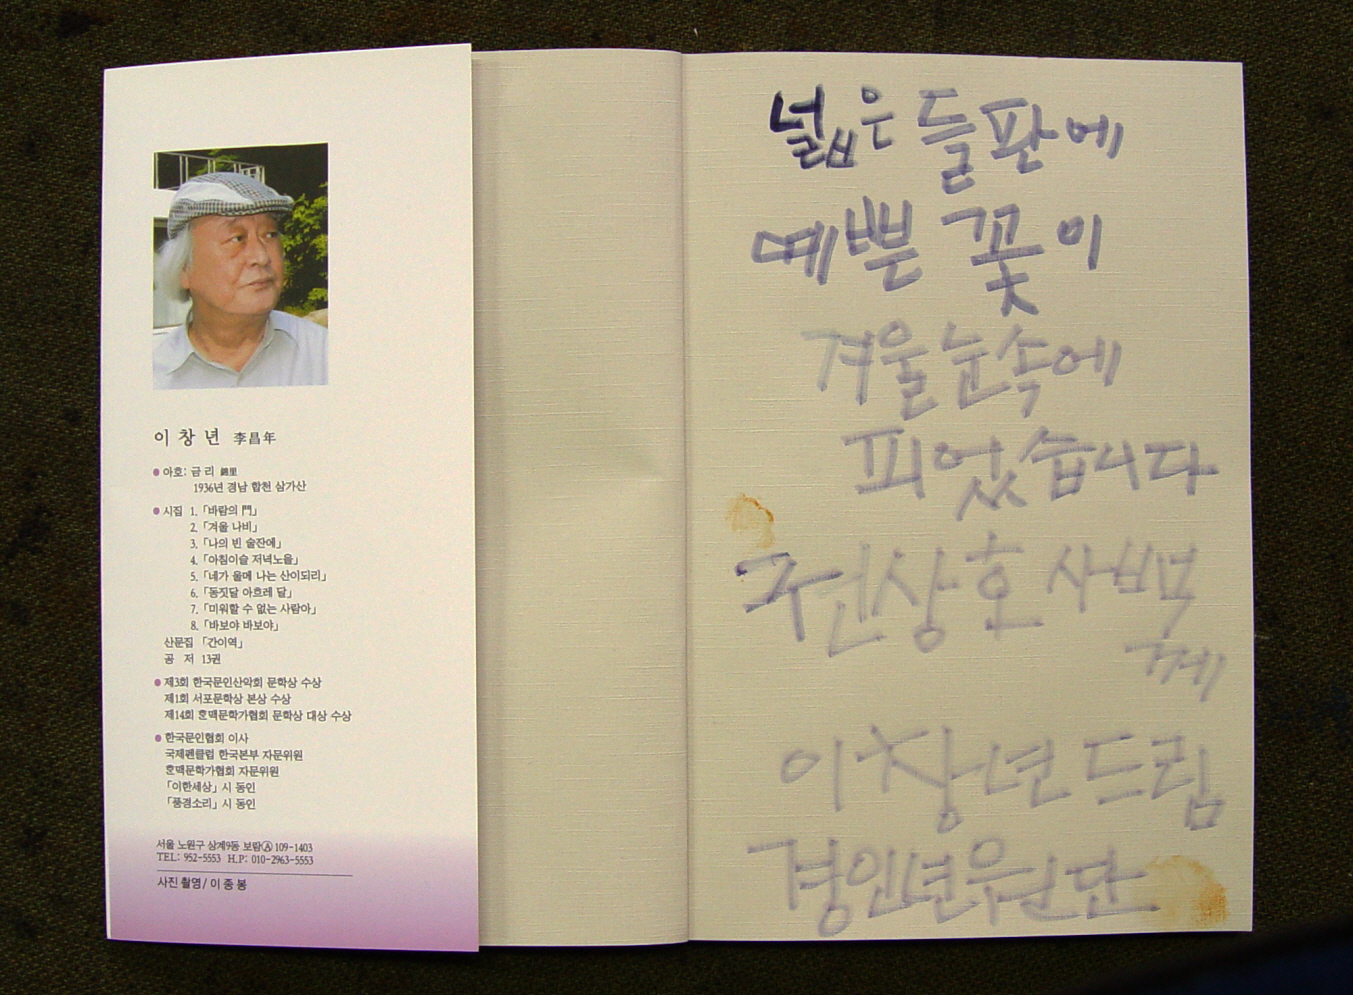 이창년 李昌年
● 아호: 금리 錦里
1936년 경남 합천 삼가산
● 시집 1. 「바람의 門」
2. 「겨울 나비」
3. 「나의 빈 술잔에」
4. 「아침이슬 저녁노을」
5. 「네가 울메 나는 산이되리」
6. 「동짓달 아흐레 달」
7. 「미워할 수 없는 사람아」
8. 「바보야 바보야」
산문집 「간이역」
공 저 13권
● 제3회 한국문인산악회 문학상 수상
제1회 서포문학상 본상 수상
제14회 흔맥문학가협회 문학상 대상 수상
● 한국문인협회 이사
국제펜클럽 한국본부 자문위원
흔맥문학가협회 자문위원
「이한세상」 시 동인
「풍경소리」 시 동인
서울 노원구 상계9동 보람Ⓐ 109-1403
TEL: 952-5553 H.P: 010-2963-5553
사진 촬영/이종봉
넓은 들판에
예쁜 꽃이
겨울 눈속에
피었습니다
권상호 사백
께
이창년 드림
경인년 원단